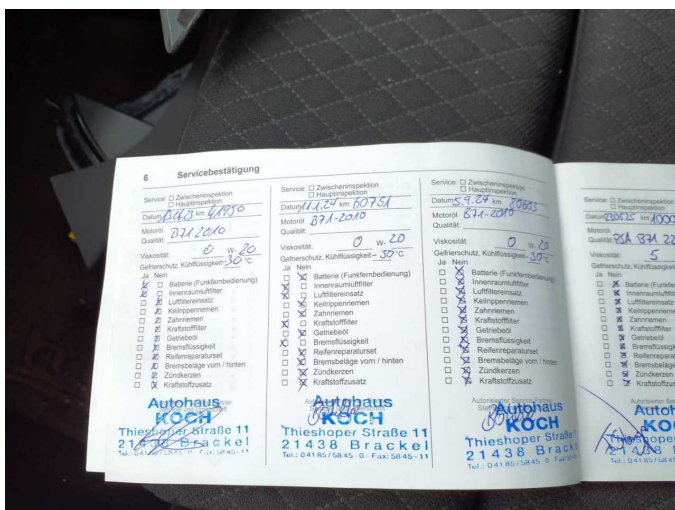 6 Servicebestätigung
Service: ☐ Zwischeninspektion
☐ Hauptinspektion
km 41930
Motoröl B71 2010
Qualität:
Viskosität: 0 W- 20
Gefrierschutz, Kühlflüssigkeit -30 °C
Ja Nein
Batterie (Funkfernbedienung)
Innenraumluftfilter
Luftfiltereinsatz
Keilrippenriemen
Zahnriemen
Kraftstofffilter
Getriebeöl
Bremsflüssigkeit
Reifenreparaturset
Bremsbeläge vorn / hinten
Zündkerzen
Kraftstoffzusatz
Autohaus
KOCH
Thieshoper Straße 11
21438 Brackel
Tel.: 04185/5845-0 · Fax: 5845-11
Service: ☐ Zwischeninspektion
☐ Hauptinspektion
Datum 11.1.24 km 60751
Motoröl B71-2010
Qualität:
Viskosität: 0 W- 20
Gefrierschutz, Kühlflüssigkeit - 30 °C
Ja Nein
Batterie (Funkfernbedienung)
Innenraumluftfilter
Luftfiltereinsatz
Keilrippenriemen
Zahnriemen
Kraftstofffilter
Getriebeöl
Bremsflüssigkeit
Reifenreparaturset
Bremsbeläge vorn / hinten
Zündkerzen
Kraftstoffzusatz
Autohaus
KOCH
Thieshoper Straße 11
21438 Brackel
Tel.: 04185/5845-0 · Fax: 5845-11
Service: ☐ Zwischeninspektion
☐ Hauptinspektion
Datum 5.9.24 km
Motoröl B71-2010
Qualität:
Viskosität: 0 W- 20
Gefrierschutz, Kühlflüssigkeit - 30 °C
Ja Nein
Batterie (Funkfernbedienung)
Innenraumluftfilter
Luftfiltereinsatz
Keilrippenriemen
Zahnriemen
Kraftstofffilter
Getriebeöl
Bremsflüssigkeit
Reifenreparaturset
Bremsbeläge vorn / hinten
Zündkerzen
Kraftstoffzusatz
Autorisierter Service-Partner
Autohaus
KOCH
Thieshoper Straße
21438 Brack
Tel.: 04185/5845-0 · Fax: 5845
Service: ☐ Zwischeninspektion
☐ Hauptinspektion
km
Motoröl
Qualität: PSA B71 22
Viskosität: 5
Gefrierschutz, Kühlflüssigkeit
Ja Nein
Batterie (Funkfern
Innenraumluftfilt
Luftfiltereinsatz
Keilrippenrieme
Zahnriemen
Kraftstofffilter
Getriebeöl
Bremsflüssigk
Reifenrepara
Bremsbeläge
Zündkerzen
Kraftstoffzus
Autorisierter Ser
Autoh
KO
21438 B